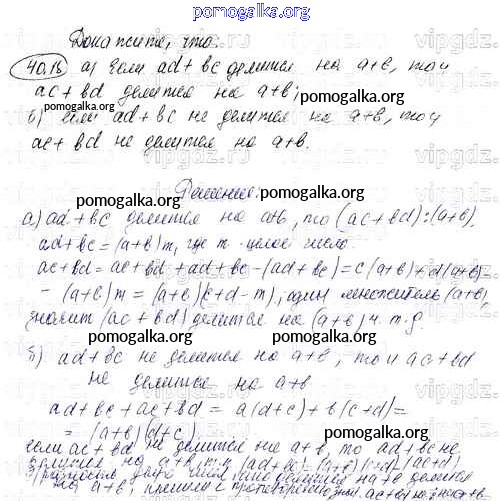 pomogalka.org
Докажите, что:
40.15 а) Если ad + bc делится на a+b, то и
ac + bd делится на a+b;
pomogalka.org
б) если ad + bc не делится на a+b, то и
ac + bd не делится на a+b.
Решение.
pomogalka.org
а) ad + bc делится на a+b, то (ac+bd):(a+b),
ad+bc = (a+b)m, где m - целое число.
pomogalka.org
ac+bd = ac+bd+ad+bc-(ad+bc) = c(a+b)+d(a+b)-
-(a+b)m = (a+b)(c+d-m), один множитель (a+b),
pomogalka.org
значит (ac+bd) делится на (a+b) ч.т.д.
pomogalka.org
б) ad+bc не делится на a+b, то и ac+bd
не делится на a+b
pomogalka.org
ad+bc+ac+bd = a(d+c)+b(c+d)=
= (a+b)(d+c)
если ac+bd не делится на a+b, то ad+bc не
pomogalka.org
делится на a+b
на a+b
vipgdz.ru